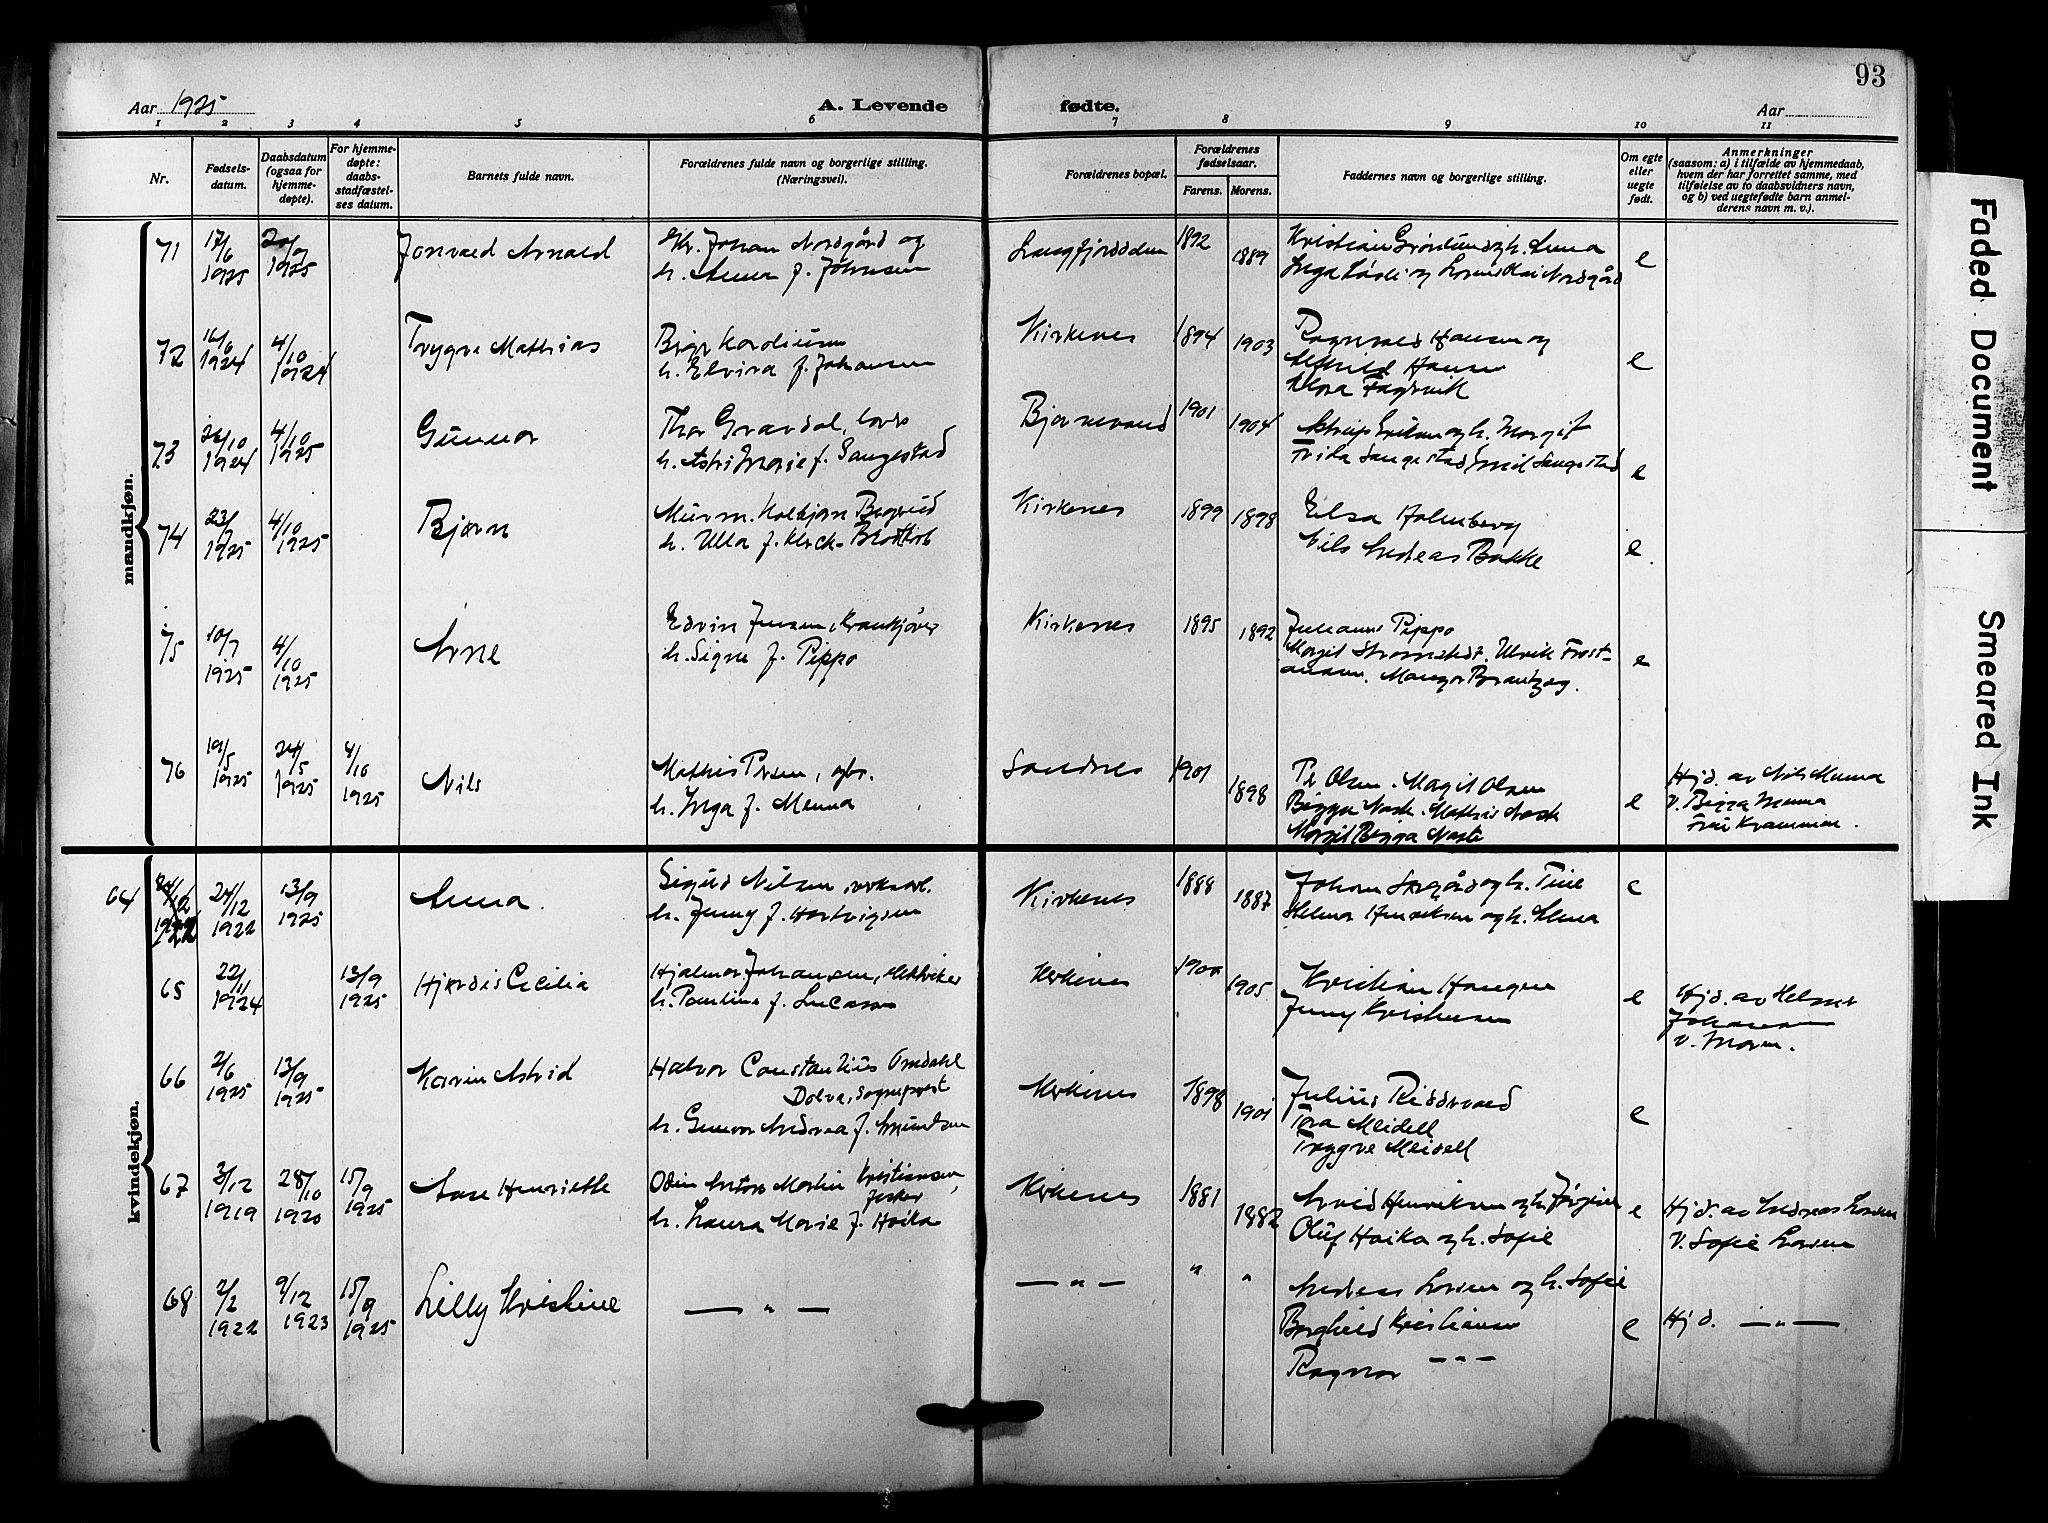 93
Aar 1925
A. Levende
fødte.
Aar
1 2 3 4 5 6 7 8 9 10 11
Nr.
Fødsels-
datum.
Daabsdatum
(ogsaa for
hjemme-
døpte).
For hjemme-
døpte:
daabs-
stadfæstel-
ses datum.
Barnets fulde navn.
Forældrenes fulde navn og borgerlige stilling.
(Næringsvei).
Forældrenes bopæl.
Forældrenes
fødselsaar.
Farens. Morens.
Faddernes navn og borgerlige stilling.
Om egte
eller
uegte
født.
Anmerkninger
(saasom: a) i tilfælde av hjemmedaab,
hvem der har forrettet samme, med
tilføielse av to daabsvidners navn,
og b) ved uegtefødte barn anmel-
derens navn m. v.).
mandkjøn.
71 17/6 1925 20/9 1925 Jonvald Arnold
Johan Nordgård og
h. Anna f. Johnsen
1892 1889
Kristian Grønlund og h. Anna
Nordgård
e
72 1924 4/10 1924 Trygve Mathias
h. Elvira f. Johansen
Kirkenes 1894 1903
Ragnvald Hansen og
Alfhild Hansen
Fagervik
e
73 26/10 1924 4/10 1925 Gunnar
Thor
h. Astri Marie f. Saugestad
Bjørnevand 1901 1904
Eriksen og h. Margit
Frida Saugestad Emil Saugestad
e
74 23/7 1925 4/10 1925 Bjørn
h. Ulla f.
Kirkenes 1899 1898
Elsa Holmberg
Nils Andreas Bakke
e
75 10/7 1925 4/10 1925 Arne
Edvin Jensen, krankjører
h. Signe f. Pippo
Kirkenes 1895 1892
Pippo
Margit Strømstedt. Ulrik Frost-
e
76 19/5 1925 24/5 1925 4/10 1925 Nils
Mathis Persen, gbr.
h. Inga f. Menna
Sandnes 1901 1898
Per Olsen. Margit Olsen
Bigga Nask. Mathis Nask
Margit Bigga
e
Hjd. av Nils Menna
v. Bigga Menna
kvindekjøn.
64 24/12 1922 13/9 1925 Anna.
Sigurd Nilsen
h. Jenny f. Hartvigsen
Kirkenes 1888 1887
Johan og h. Tine
Helmer Henriksen og h. Anna
e
65 22/11 1924 13/9 1925 Hjørdis Cecilia
Hjalmar Johansen, elektriker
h. Pauline f.
Kirkenes 1900 1905
Kristian Haugen
Jenny Kristensen
e
Hjd. av Helmer
Johansen
v. Moren.
66 2/6 1925 13/9 1925 Karin Astrid
Halvor Constantius Omdahl
Dolva, sogneprest
h. Gunvor Andrea f. Amundsen
Kirkenes 1898 1901
Julius Riddervold
Tora Meidell
Trygve Meidell
e
67 3/12 1919 28/10 1920 15/9 1925 Aase Henriette
Odin Anton Martin Kristiansen,
fisker
h. Laura Marie f. Haika
Kirkenes 1881 1882
Arvid Henriksen og h. Jørgine
Oluf Haika og h. Sofie
e
Hjd. av Andreas Larsen
v. Sofie Larsen
68 2/2 1922 9/12 1923 15/9 1925 Lilly Kristine
— " —
— " — " "
Andreas Larsen og h. Sofie
Borghild Kristiansen
Ragnar — " —
e
Hjd. — " —
Faded Document
Smeared Ink